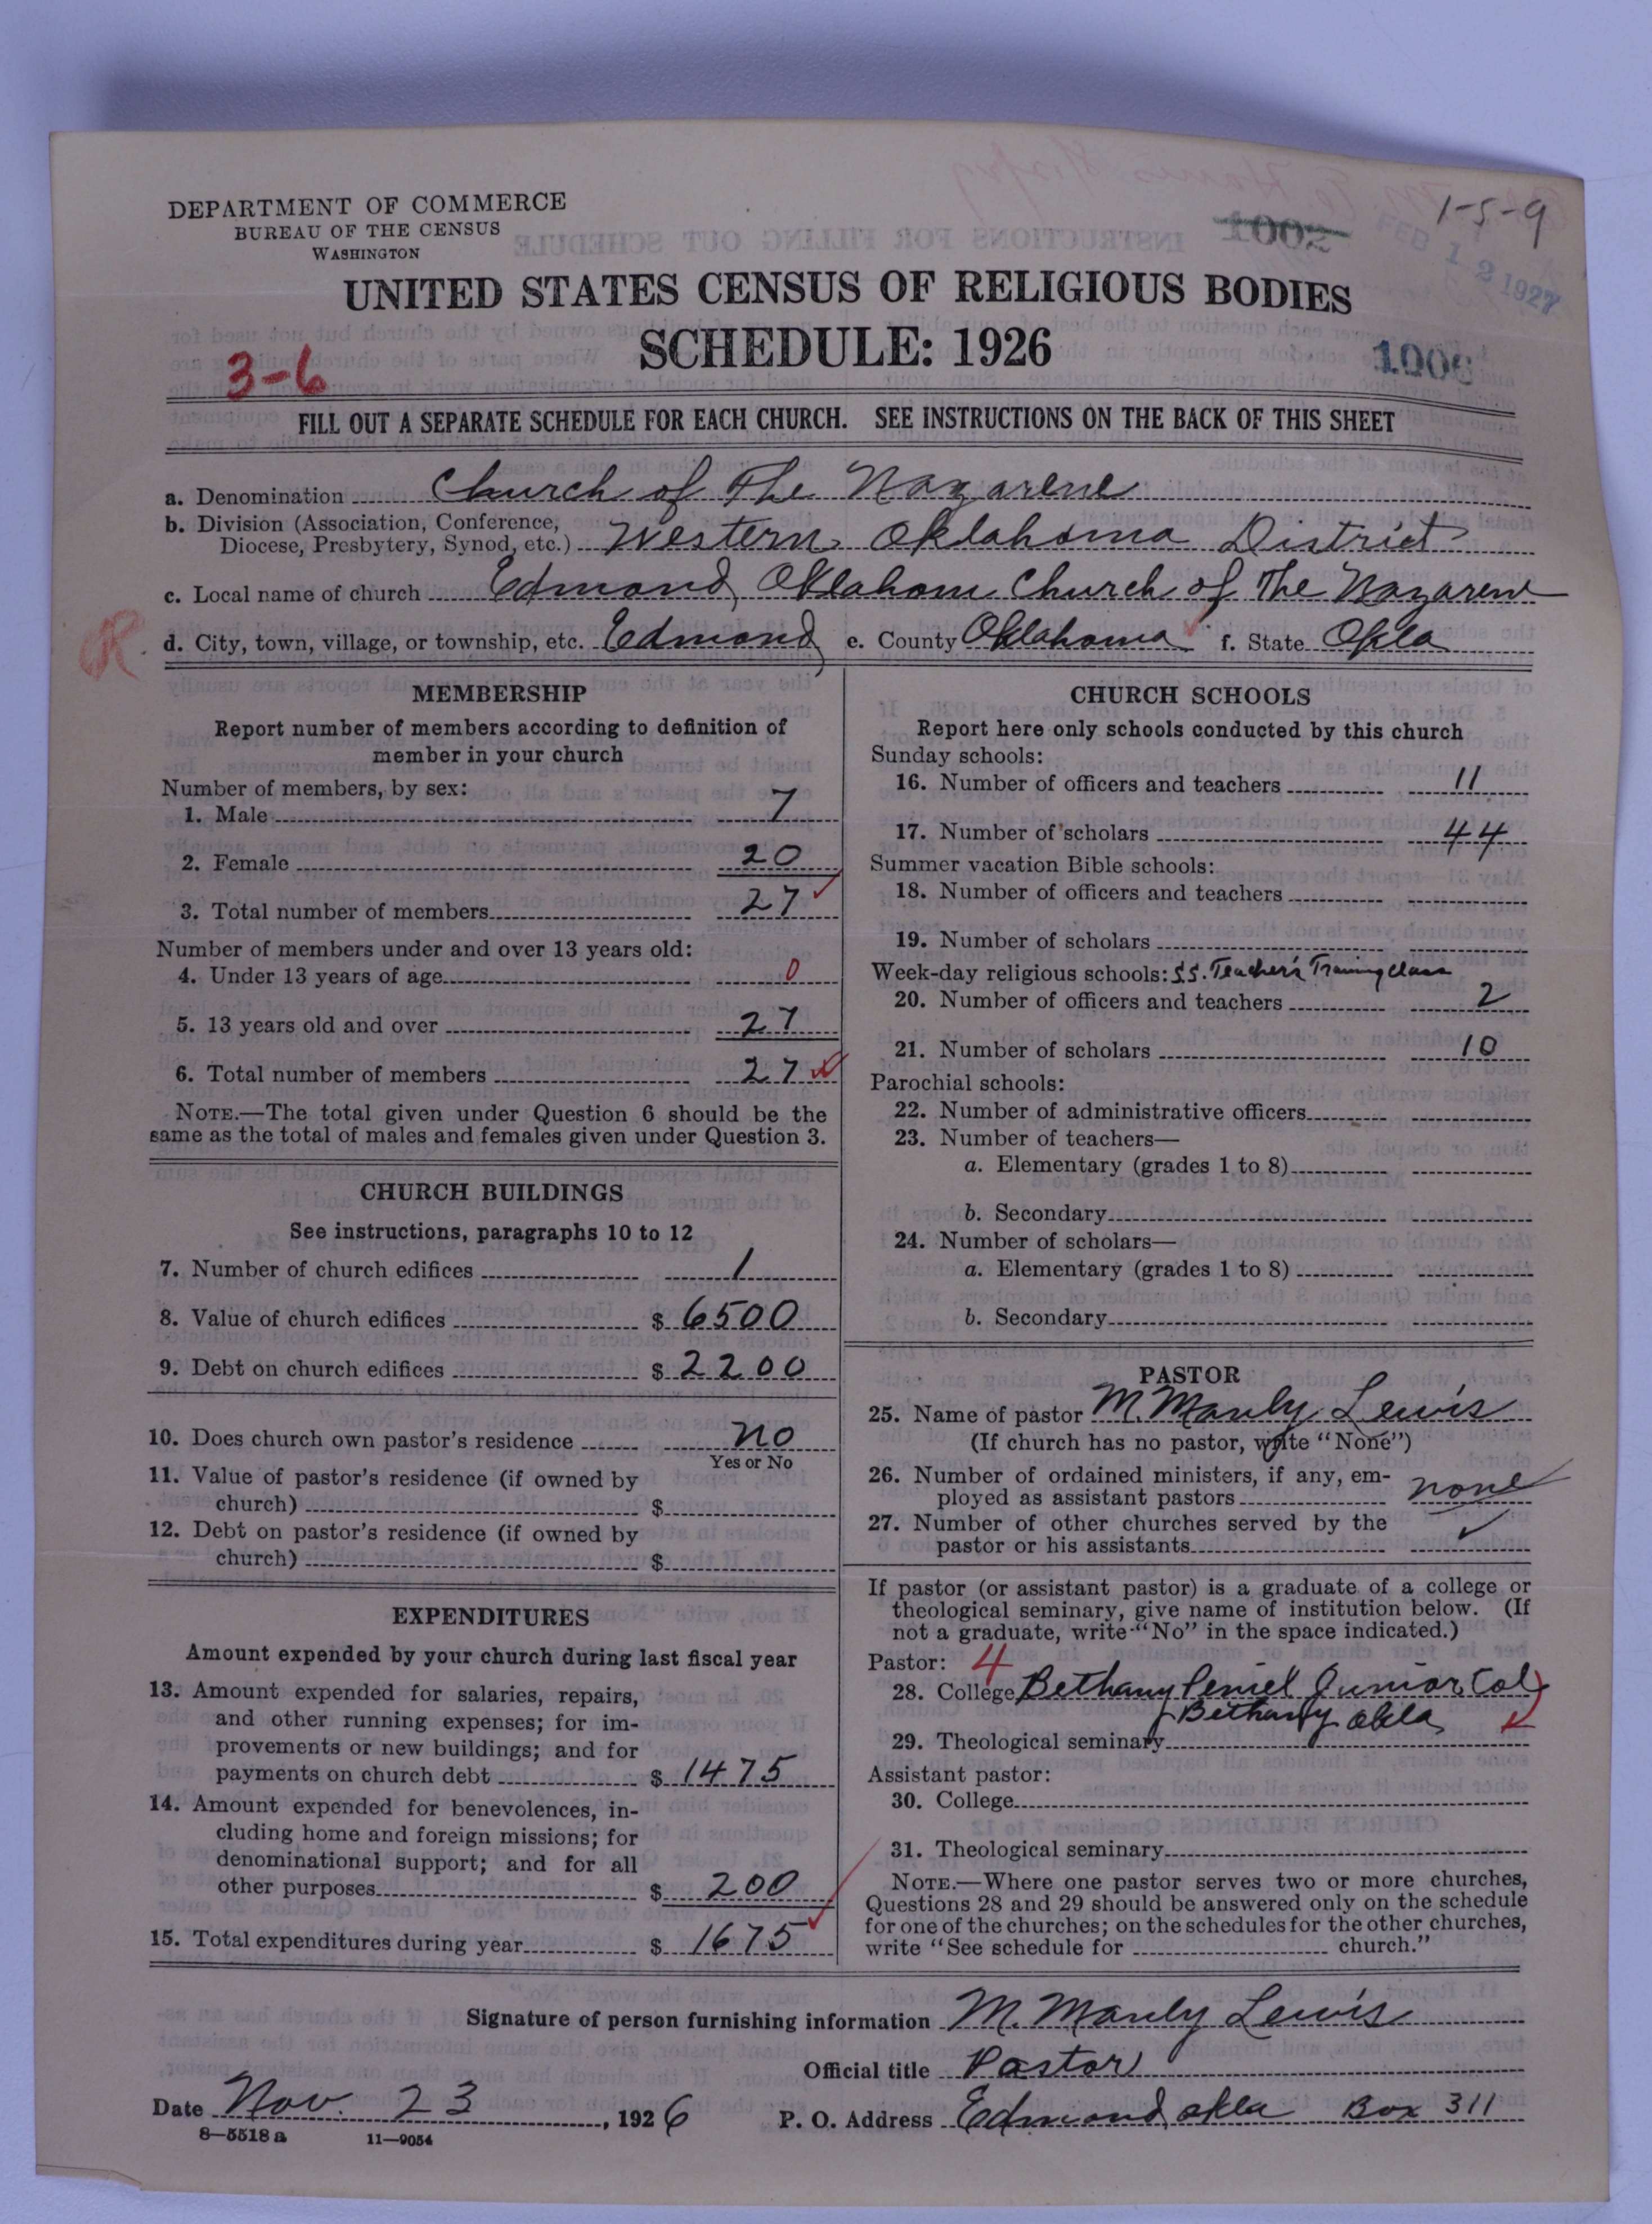 1-5-9
DEPARTMENT OF COMMERCE
BUREAU OF THE CENSUS
WASHINGTON
1002
FEB 12 1927
UNITED STATES CENSUS OF RELIGIOUS BODIES
SCHEDULE: 1926
3-6
1006
FILL OUT A SEPARATE SCHEDULE FOR EACH CHURCH. SEE INSTRUCTIONS ON THE BACK OF THIS SHEET
a. Denomination Church of The Nazarene
b. Division (Association, Conference,
Diocese, Presbytery, Synod, etc.) Western Oklahoma District
c. Local name of church Edmond, Oklahom Church of The Nazarene
R. d. City, town, village, or township, etc. Edmond, e. County Oklahoma f. State Okla
MEMBERSHIP
Report number of members according to definition of
member in your church
Number of members, by sex:
1. Male 7
2. Female 20
3. Total number of members 27
Number of members under and over 13 years old:
4. Under 13 years of age 0
5. 13 years old and over 27
6. Total number of members 27
NOTE.—The total given under Question 6 should be the
same as the total of males and females given under Question 3.
CHURCH BUILDINGS
See instructions, paragraphs 10 to 12
7. Number of church edifices 1
8. Value of church edifices $ 6500
9. Debt on church edifices $ 2200
10. Does church own pastor's residence no
Yes or No
11. Value of pastor's residence (if owned by
church) $
12. Debt on pastor's residence (if owned by
church) $
EXPENDITURES
Amount expended by your church during last fiscal year
13. Amount expended for salaries, repairs,
and other running expenses; for im-
provements or new buildings; and for
payments on church debt $ 1475
14. Amount expended for benevolences, in-
cluding home and foreign missions; for
denominational support; and for all
other purposes $ 200
15. Total expenditures during year $ 1675
CHURCH SCHOOLS
Report here only schools conducted by this church
Sunday schools:
16. Number of officers and teachers 11
17. Number of scholars 44
Summer vacation Bible schools:
18. Number of officers and teachers
19. Number of scholars
Week-day religious schools: S.S. Teacher's Training Class
20. Number of officers and teachers 2
21. Number of scholars 10
Parochial schools:
22. Number of administrative officers
23. Number of teachers—
a. Elementary (grades 1 to 8)
b. Secondary
24. Number of scholars—
a. Elementary (grades 1 to 8)
b. Secondary
PASTOR
25. Name of pastor M. Manly Lewis
(If church has no pastor, write "None")
26. Number of ordained ministers, if any, em-
ployed as assistant pastors none
27. Number of other churches served by the
pastor or his assistants
If pastor (or assistant pastor) is a graduate of a college or
theological seminary, give name of institution below. (If
not a graduate, write "No" in the space indicated.)
Pastor: 4
28. College Bethany Peniel Junior Col
Bethany Okla
29. Theological seminary
Assistant pastor:
30. College
31. Theological seminary
NOTE.—Where one pastor serves two or more churches,
Questions 28 and 29 should be answered only on the schedule
for one of the churches; on the schedules for the other churches,
write "See schedule for church."
Signature of person furnishing information M. Manly Lewis
Official title Pastor
Date Nov. 23, 1926 P. O. Address Edmond, Okla Box 311
8—5518 a 11—9054